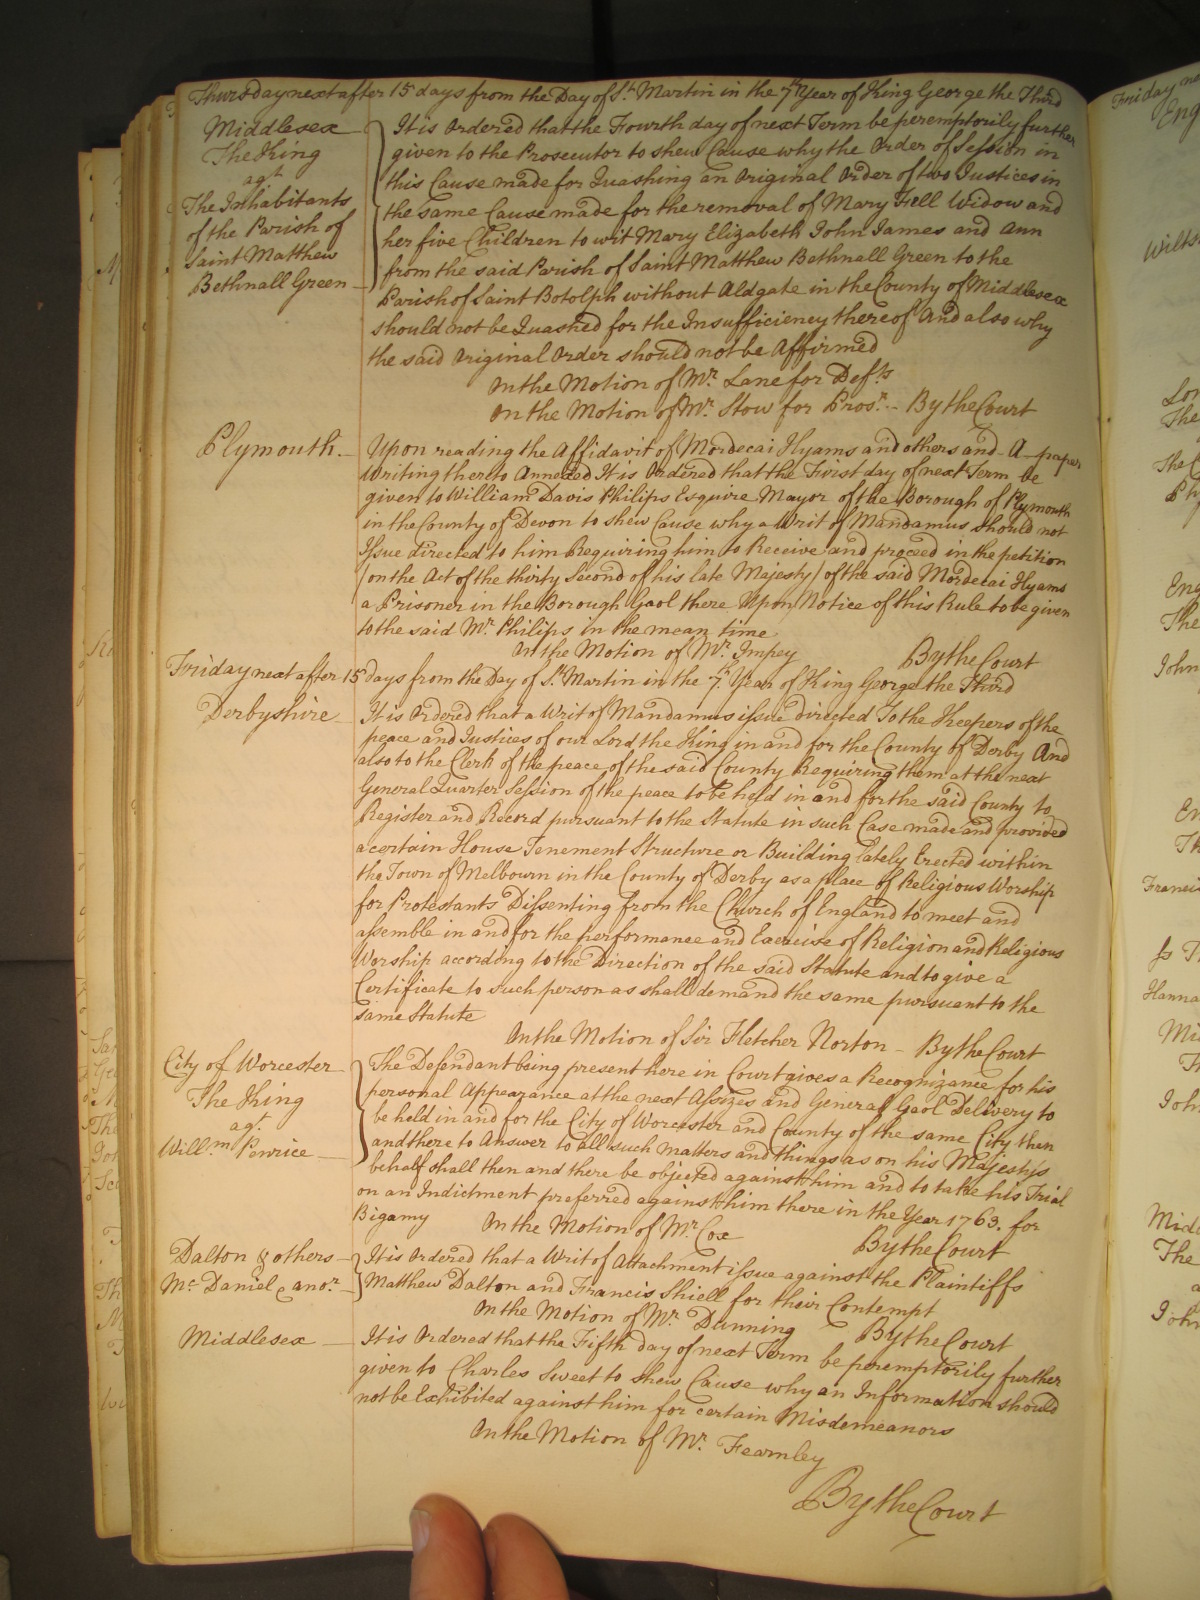 Thursday next after 15 days from the Day of St. Martin in the 7th Year of King George the Third
Middlesex
The King
agt
The Inhabitants
of the Parish of
Saint Matthew
Bethnall Green
It is Ordered that the Fourth day of next Term be peremptorily further
given to the Prosecutor to shew Cause why the Order of Session in
this Cause made for Quashing an Original Order of two Justices in
the same Cause made for the removal of Mary Fell Widow and
her five Children to wit Mary Elizabeth John James and Ann
from the said Parish of Saint Matthew Bethnall Green to the
Parish of Saint Botolph without Aldgate in the County of Middlesex
should not be Quashed for the Insufficiency thereof And also why
the said Original Order should not be Affirmed
On the Motion of Mr. Lane for Defts
On the Motion of Mr. Stow for Prosr. - By the Court
Plymouth.
Upon reading the Affidavit of Mordecai Hyams and others and A paper
Writing thereto Annexed It is Ordered that the First day of next Term be
given to William Davis Philips Esquire Mayor of the Borough of Plymouth
in the County of Devon to shew Cause why a Writ of Mandamus should not
Issue directed to him Requiring him to Receive and proceed in the petition
(on the Act of the thirty Second of his late Majesty) of the said Mordecai Hyams
a Prisoner in the Borough Gaol there Upon Notice of this Rule to be given
to the said Mr. Philips in the mean time
On the Motion of Mr. Impey By the Court
Friday next after 15 days from the Day of St. Martin in the 7th. Year of King George the Third
Derbyshire
It is Ordered that a Writ of Mandamus issue directed To the Keepers of the
peace and Justices of our Lord the King in and for the County of Derby And
also to the Clerk of the peace of the said County Requiring them at the next
General Quarter Session of the peace to be held in and for the said County to
Register and Record pursuant to the Statute in such Case made and provided
a certain House Tenement Structure or Building lately Erected within
the Town of Melbourn in the County of Derby as a place of Religious Worship
for Protestants Dissenting from the Church of England to meet and
assemble in and for the performance and Exercise of Religion and Religious
Worship according to the Direction of the said Statute and to give a
Certificate to such person as shall demand the same pursuant to the
same Statute
On the Motion of Sir Fletcher Norton - By the Court
City of Worcester
The King
agt.
Willm. Penrice
The Defendant being present here in Court gives a Recognizance for his
personal Appearance at the next Assizes and General Gaol Delivery to
be held in and for the City of Worcester and County of the same City then
and there to Answer to all such Matters and things as on his Majestys
behalf shall then and there be objected against him and to take his Trial
on an Indictment preferred against him there in the Year 1763. for
Bigamy On the Motion of Mr. Cox By the Court
Dalton & others
Mc. Daniel & anor.
It is Ordered that a Writ of Attachment issue against the Plaintiffs
Matthew Dalton and Francis Shiell for their Contempt
On the Motion of Mr. Dunning By the Court
Middlesex
It is Ordered that the Fifth day of next Term be peremptorily further
given to Charles Sweet to shew Cause why an Information should
not be Exhibited against him for certain Misdemeanors
On the Motion of Mr. Fearnley
By the Court